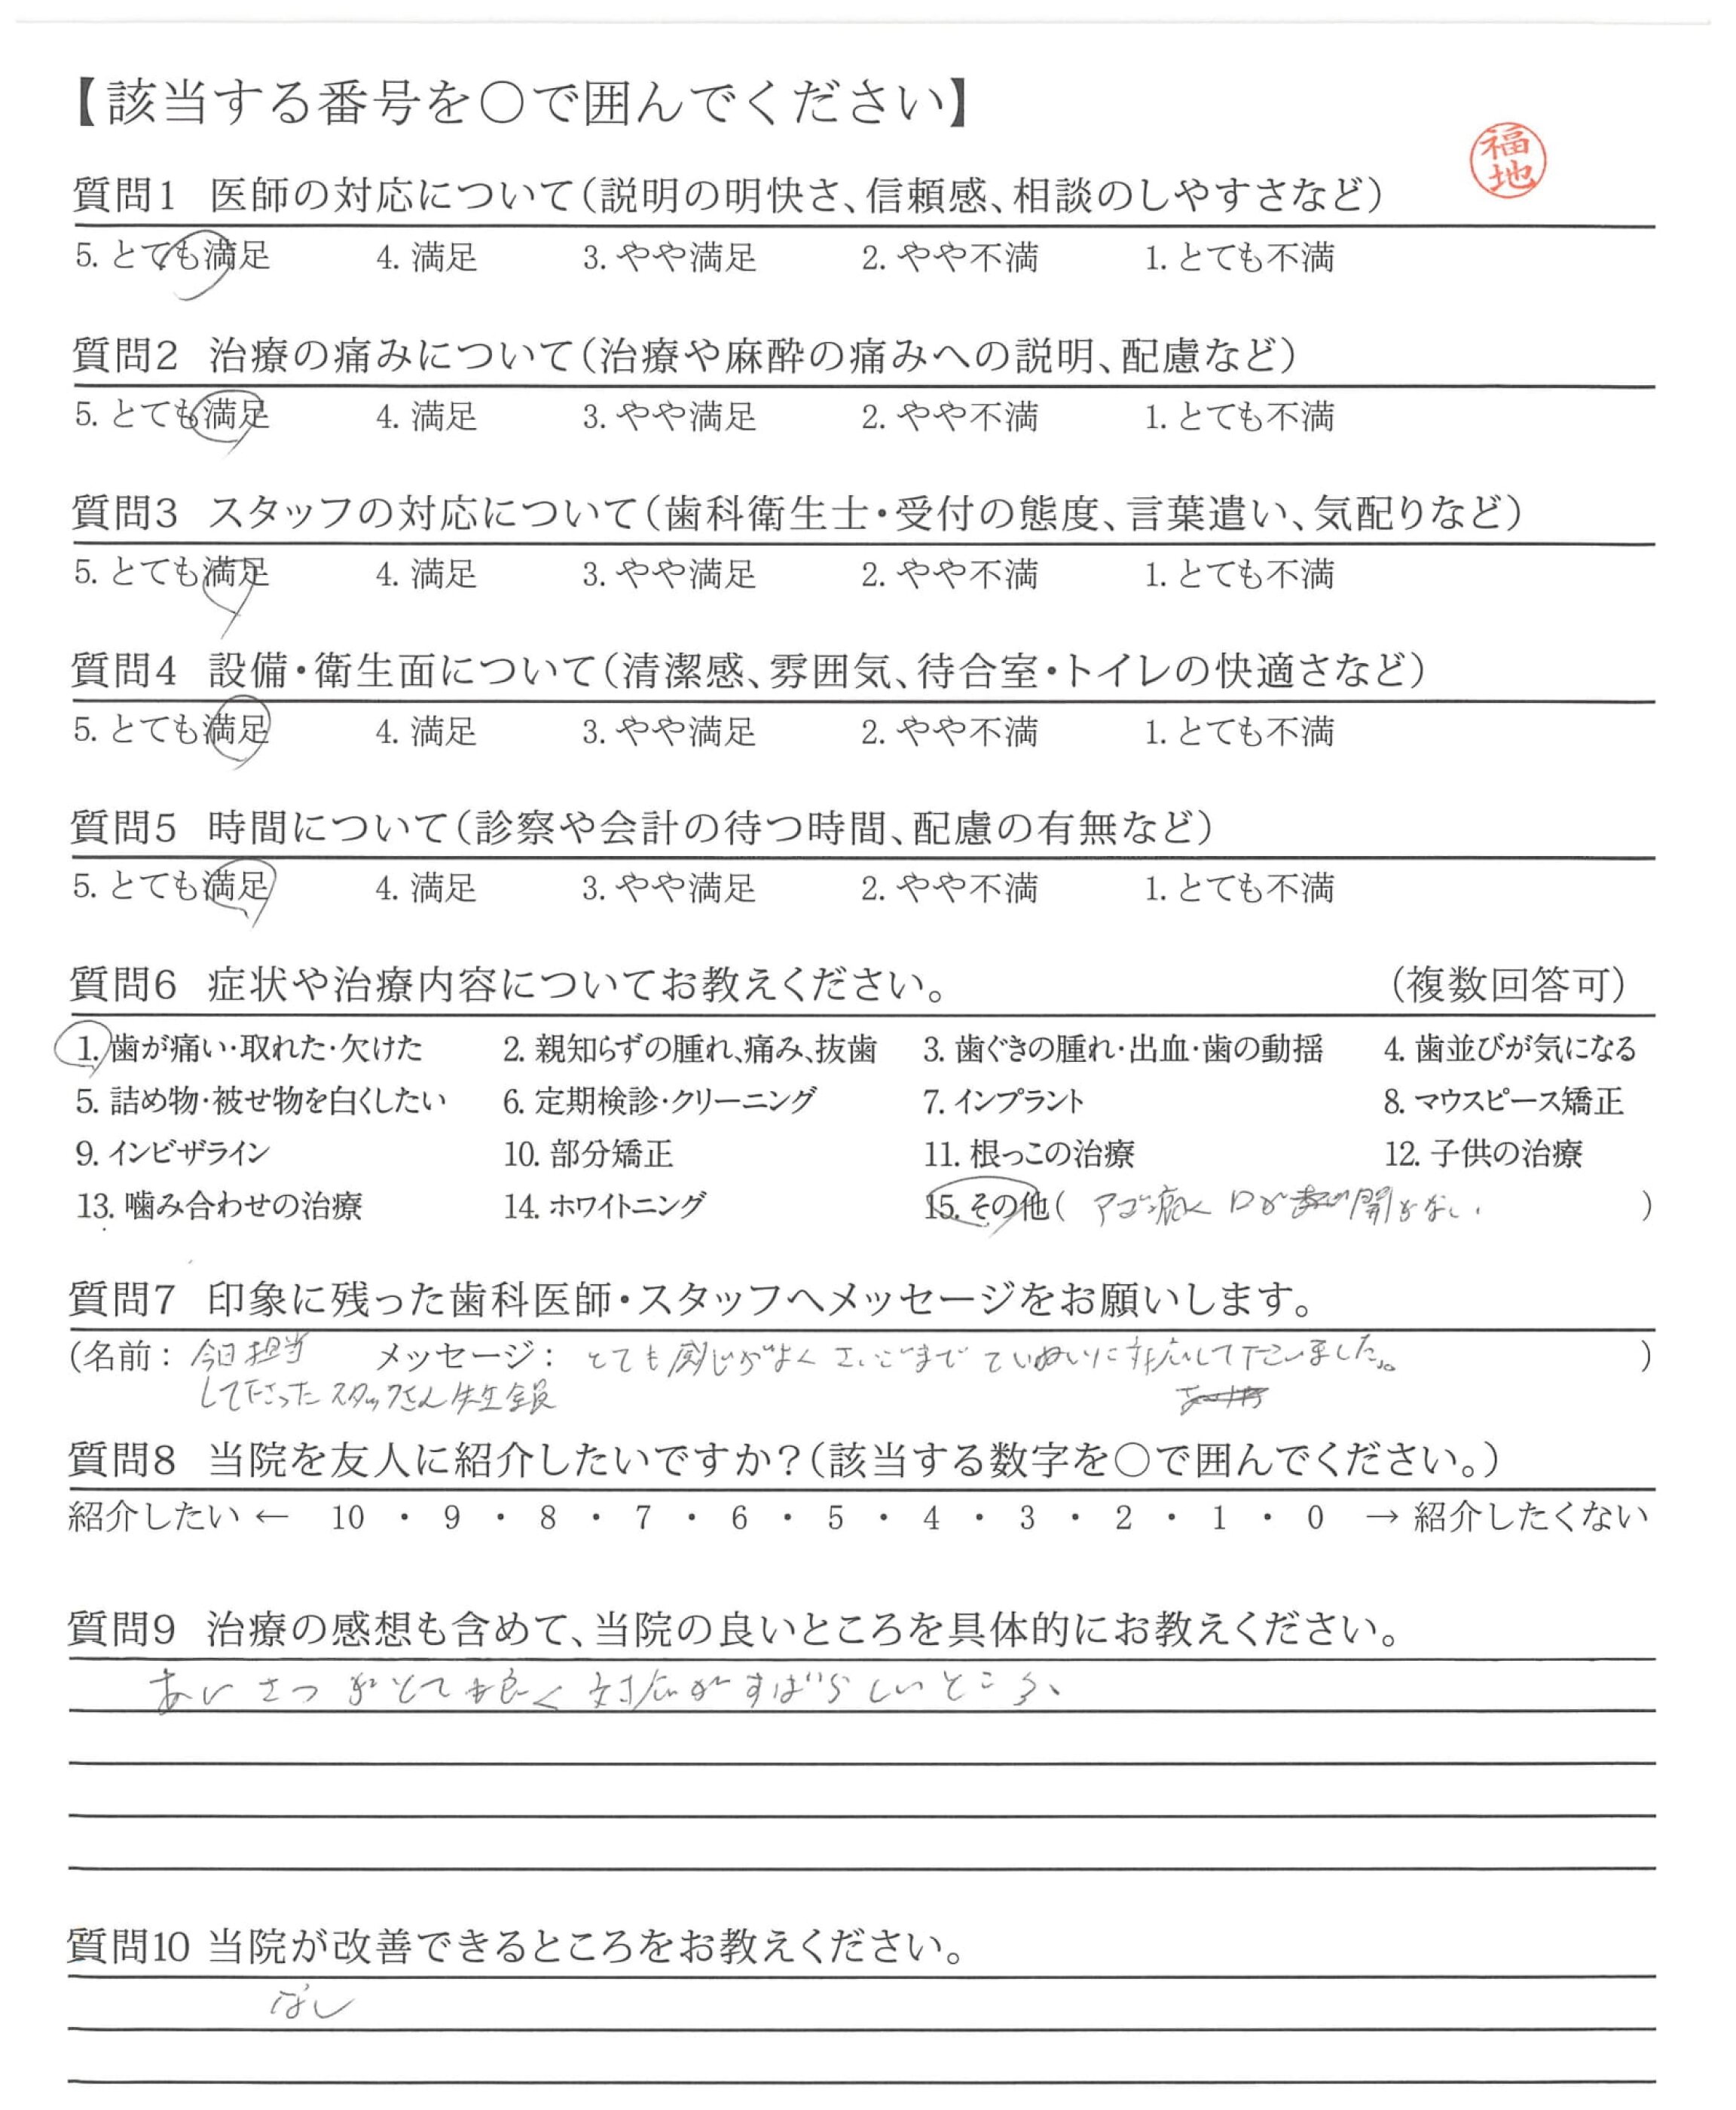 【該当する番号を○で囲んでください】
福地
質問1 医師の対応について(説明の明快さ、信頼感、相談のしやすさなど)
5. とても満足 4. 満足 3. やや満足 2. やや不満 1. とても不満
質問2 治療の痛みについて(治療や麻酔の痛みへの説明、配慮など)
5. とても満足 4. 満足 3. やや満足 2. やや不満 1. とても不満
質問3 スタッフの対応について(歯科衛生士・受付の態度、言葉遣い、気配りなど)
5. とても満足 4. 満足 3. やや満足 2. やや不満 1. とても不満
質問4 設備・衛生面について(清潔感、雰囲気、待合室・トイレの快適さなど)
5. とても満足 4. 満足 3. やや満足 2. やや不満 1. とても不満
質問5 時間について(診察や会計の待つ時間、配慮の有無など)
5. とても満足 4. 満足 3. やや満足 2. やや不満 1. とても不満
質問6 症状や治療内容についてお教えください。 (複数回答可)
1. 歯が痛い・取れた・欠けた 2. 親知らずの腫れ、痛み、抜歯 3. 歯ぐきの腫れ・出血・歯の動揺 4. 歯並びが気になる
5. 詰め物・被せ物を白くしたい 6. 定期検診・クリーニング 7. インプラント 8. マウスピース矯正
9. インビザライン 10. 部分矯正 11. 根っこの治療 12. 子供の治療
13. 噛み合わせの治療 14. ホワイトニング 15. その他( アゴが痛く 口が 開かない )
質問7 印象に残った歯科医師・スタッフへメッセージをお願いします。
(名前: 今日担当 メッセージ: とても感じがよく さいごまで ていねいに対応して下さいました。 )
して下さった スタッフさん 先生 全員
質問8 当院を友人に紹介したいですか?(該当する数字を○で囲んでください。)
紹介したい ← 10 ・ 9 ・ 8 ・ 7 ・ 6 ・ 5 ・ 4 ・ 3 ・ 2 ・ 1 ・ 0 → 紹介したくない
質問9 治療の感想も含めて、当院の良いところを具体的にお教えください。
あいさつがとても良く 対応がすばらしいところ、
質問10 当院が改善できるところをお教えください。
なし